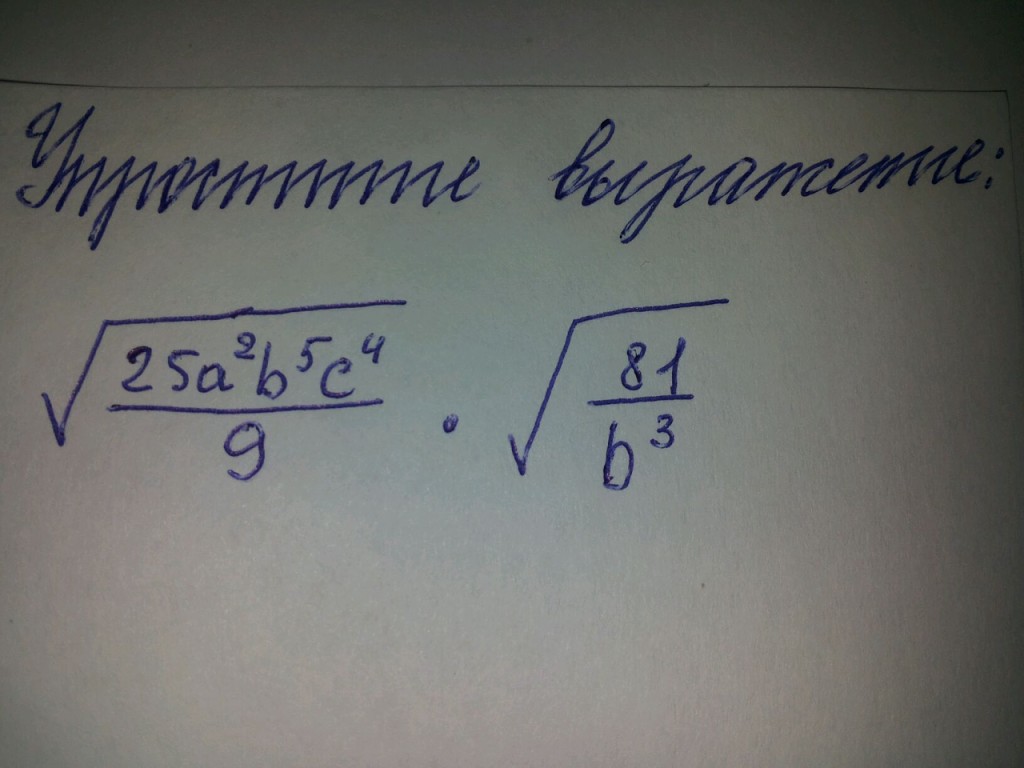 Упростите выражение:
√(25a²b⁵c⁴/9) · √(81/b³)